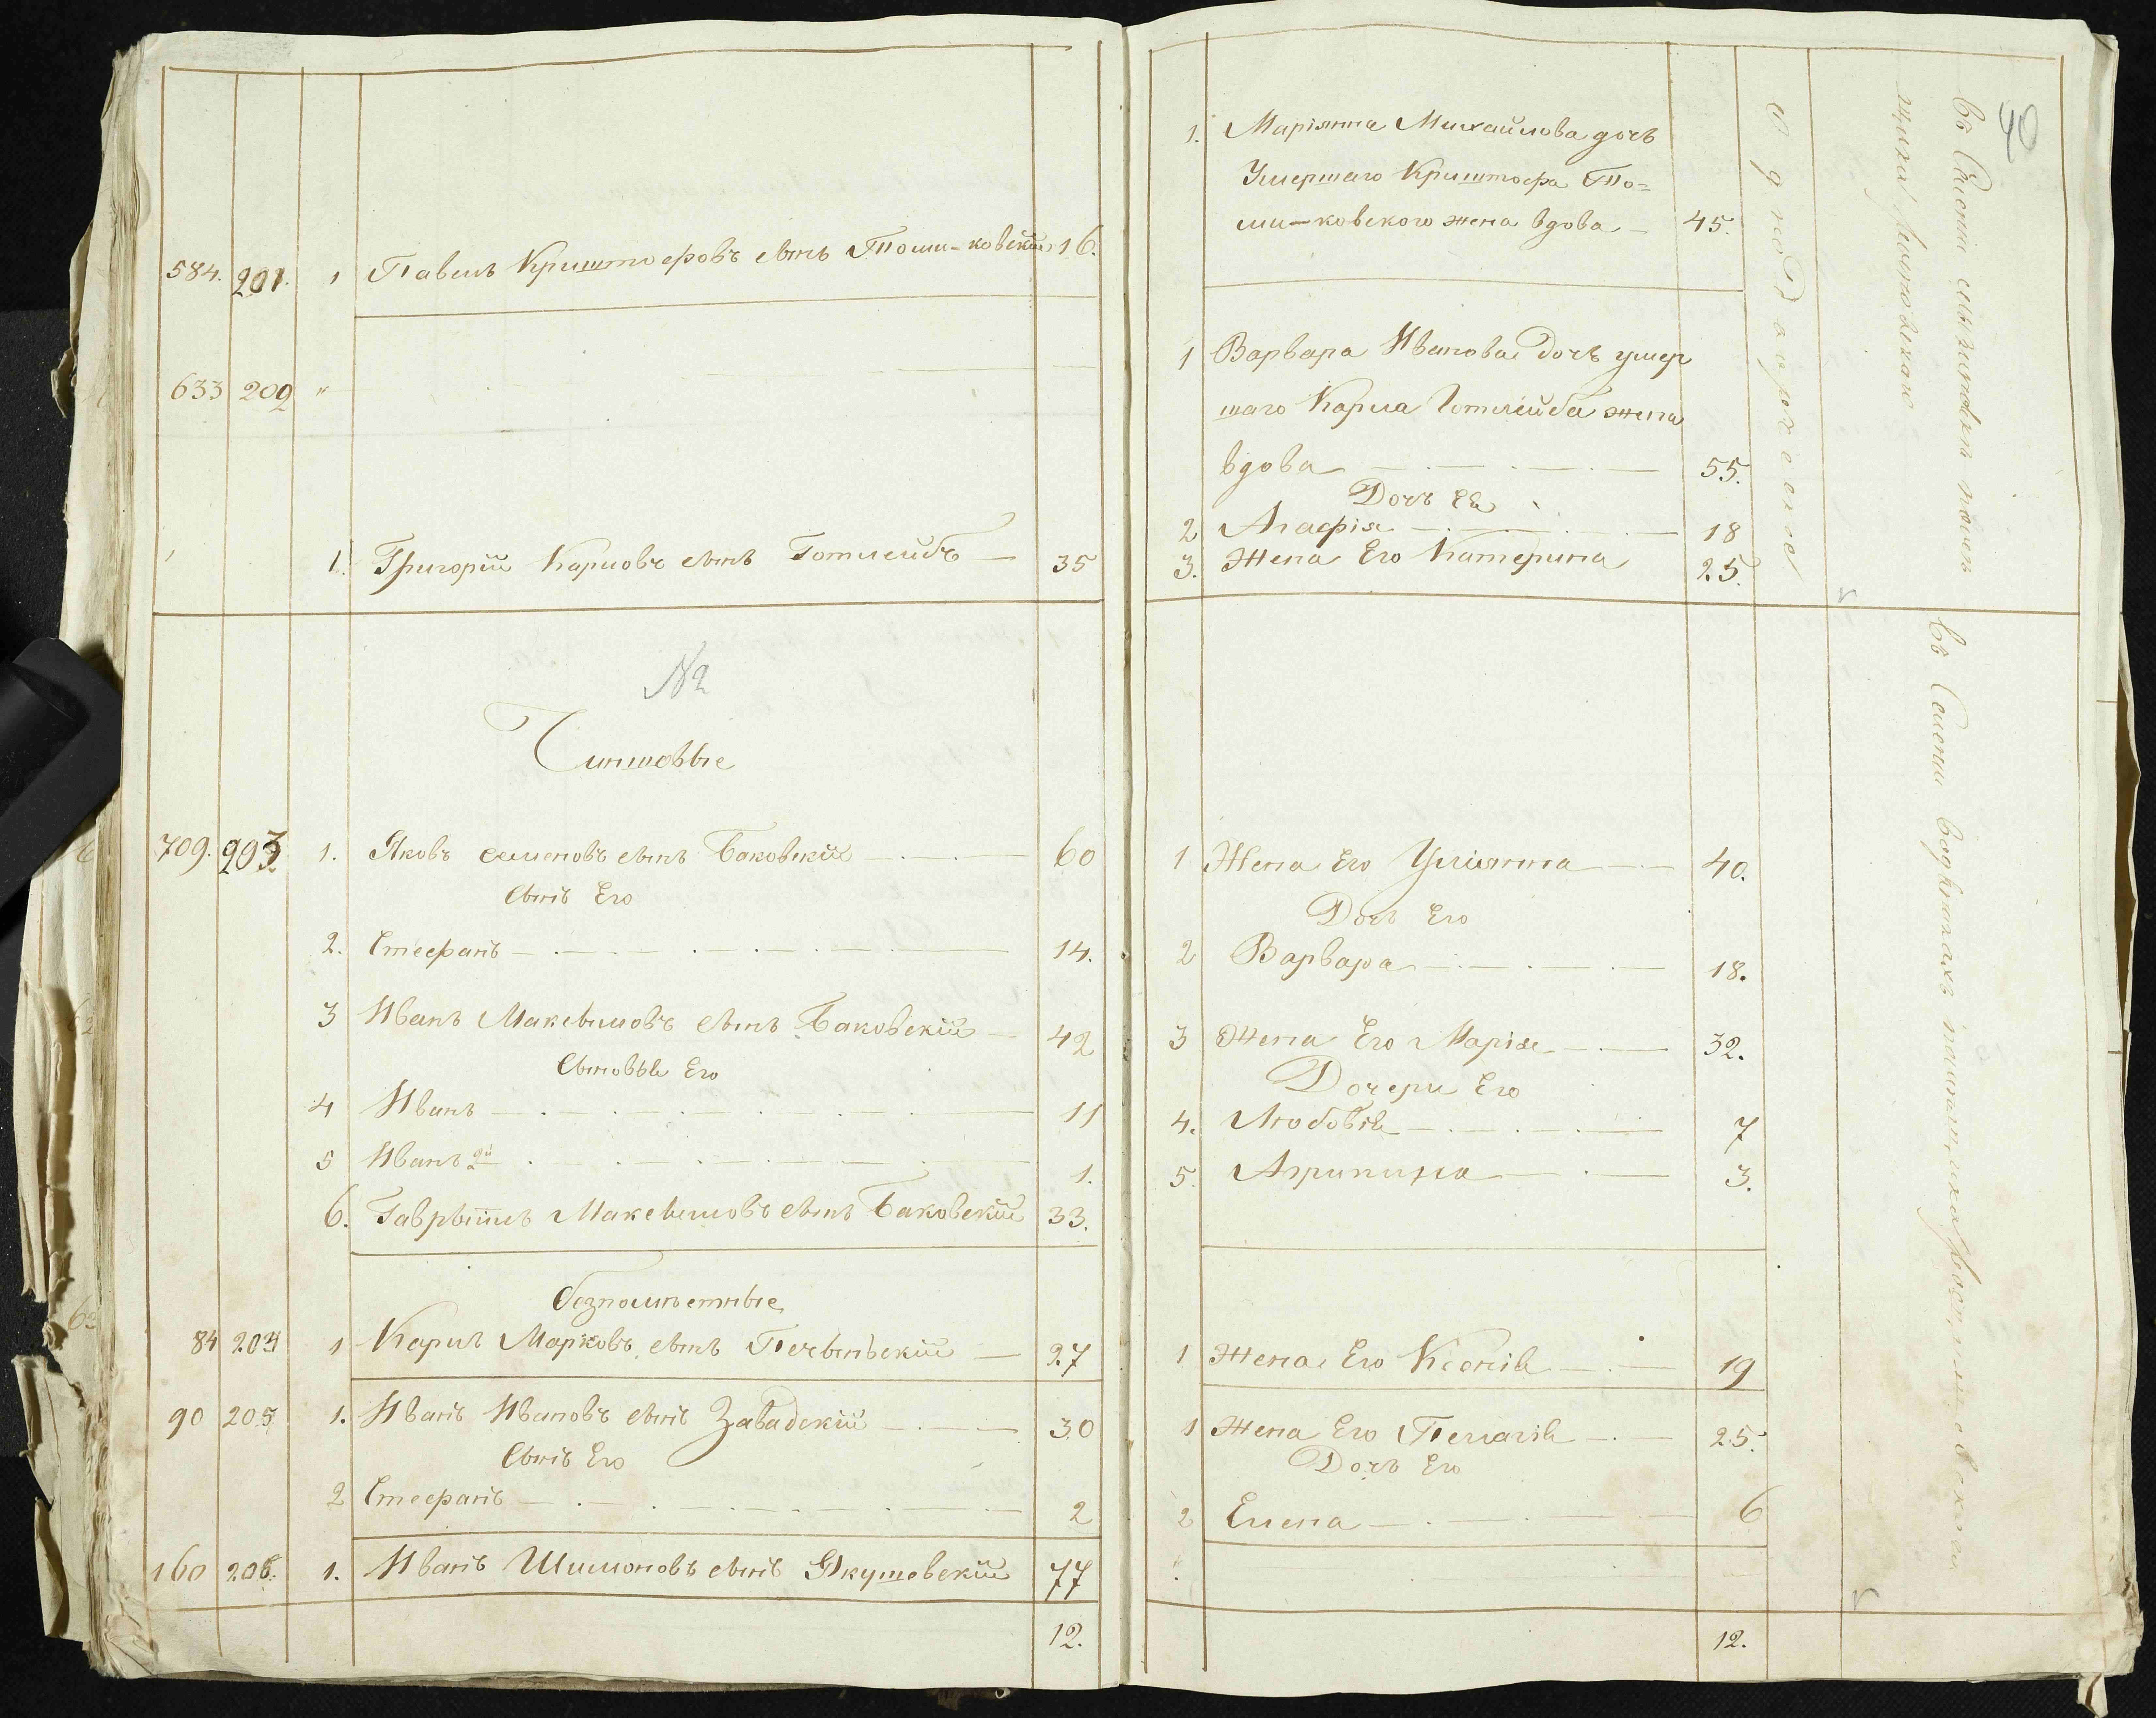 584. 201. 1 Павелъ Криштофовъ сынъ Томи-ковскій 16.
633 202 "
1. Григорій Карловъ сынъ Готлейбъ 35
№
Чиншовые
709. 203 1. Яковъ Семеновъ сынъ Баковскій 60
сынъ Его
2. Стефанъ 14.
3 Иванъ Максымовъ сынъ Баковскій 42
сыновье Его
4 Иванъ 11
5 Иванъ 2й 1.
6. Гаврыилъ Максымовъ сынъ Баковскій 33.
безпомѣстные
84 204 1 Карлъ Марковъ сынъ Печыньскій 27
90 205 1. Иванъ Ивановъ сынъ Завадскій 30
сынъ Его
2 Стефанъ 2
160 206. 1. Иванъ Шимоновъ сынъ Якушевскій 77
12.
40
1. Маріянна Михайлова дочъ
Умершаго Криштофа То=
ми-ковского жена вдова 45.
1 Варвара Иванова Дочъ умер
шаго Карла Готлейба жена
вдова 55.
Дочъ Ея
2 Агафія 18
3. Жена Его Катерина 25.
1 Жена Его Уліянна 40.
Дочъ Его
2 Варвара 18.
3 Жена Его Марія 32.
Дочери Его
4. Любовія 7
5. Агрипина 3.
1 Жена Его Ксенія 19
1 Жена Его Пелагія 25.
Дочъ Его
2 Елена 6
12.
однодворческое
въ Селеніи
въ Селеніи